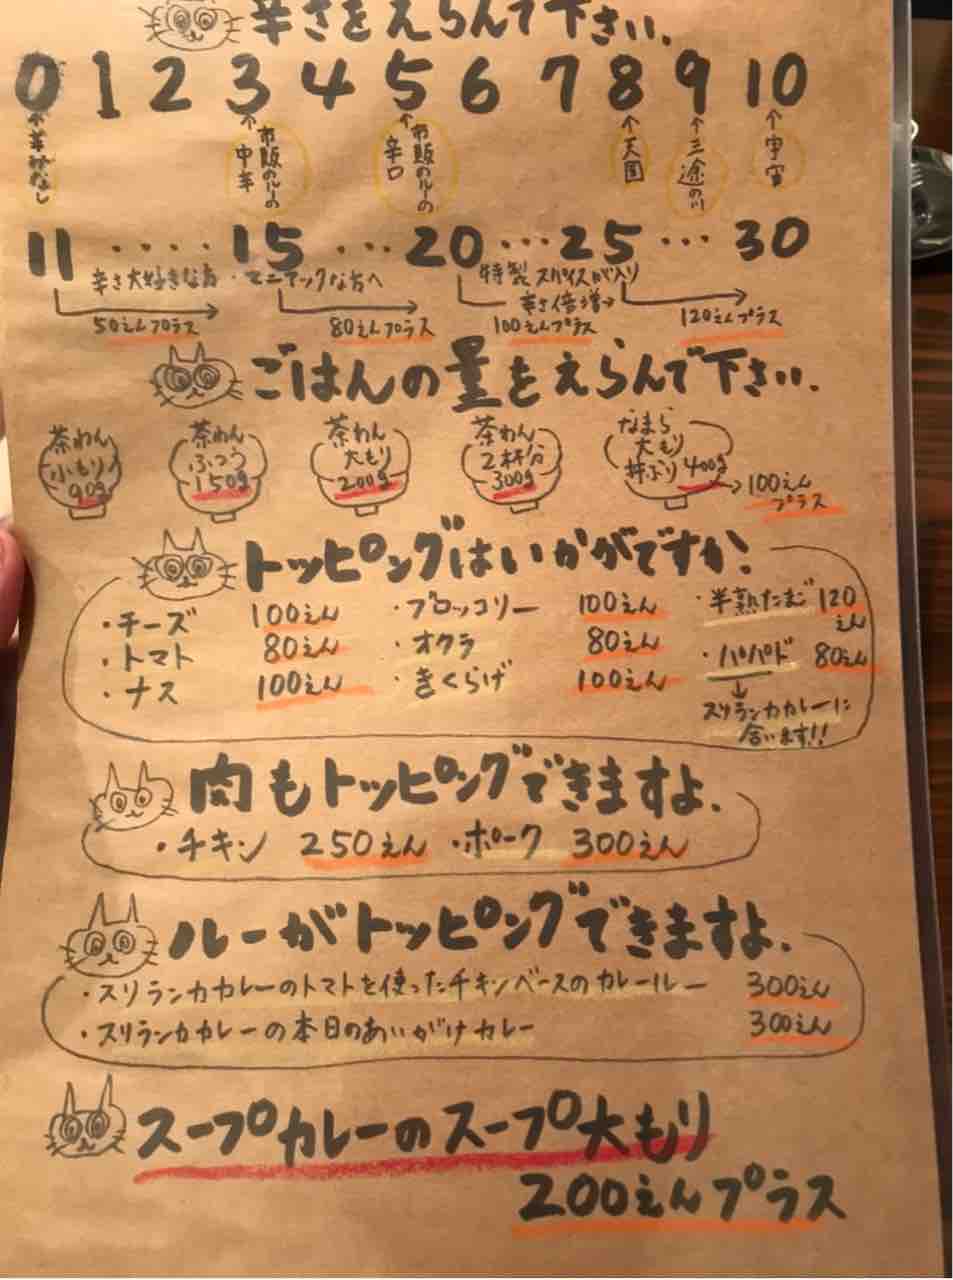 辛さをえらんで下さい.
0 1 2 3 4 5 6 7 8 9 10
↑辛味なし
↑市販のルーの中辛
↑市販のルーの辛口
↑天国
↑三途の川
↑宇宙
11 ・・・・ 15 ・・・ 20 ・・・ 25 ・・・ 30
辛さ大好きな方・マニアックな方へ
特製スパイスが入り
辛さ倍増→
50えんプラス
80えんプラス
100えんプラス
120えんプラス
ごはんの量をえらんで下さい.
茶わん小もり90g
茶わんふつう150g
茶わん大もり200g
茶わん2杯分300g
なまら大もり丼ぶり400g
→100えんプラス
トッピングはいかがですか?
・チーズ 100えん ・ブロッコリー 100えん ・半熟たまご 120えん
・トマト 80えん ・オクラ 80えん ・パパド 80えん
・ナス 100えん ・きくらげ 100えん
↓
スリランカカレーに
合います!!
肉もトッピングできますよ.
・チキン 250えん ・ポーク 300えん
ルーがトッピングできますよ.
・スリランカカレーのトマトを使ったチキンベースのカレールー 300えん
・スリランカカレーの本日のあいがけカレー 300えん
スープカレーのスープ大もり
200えんプラス